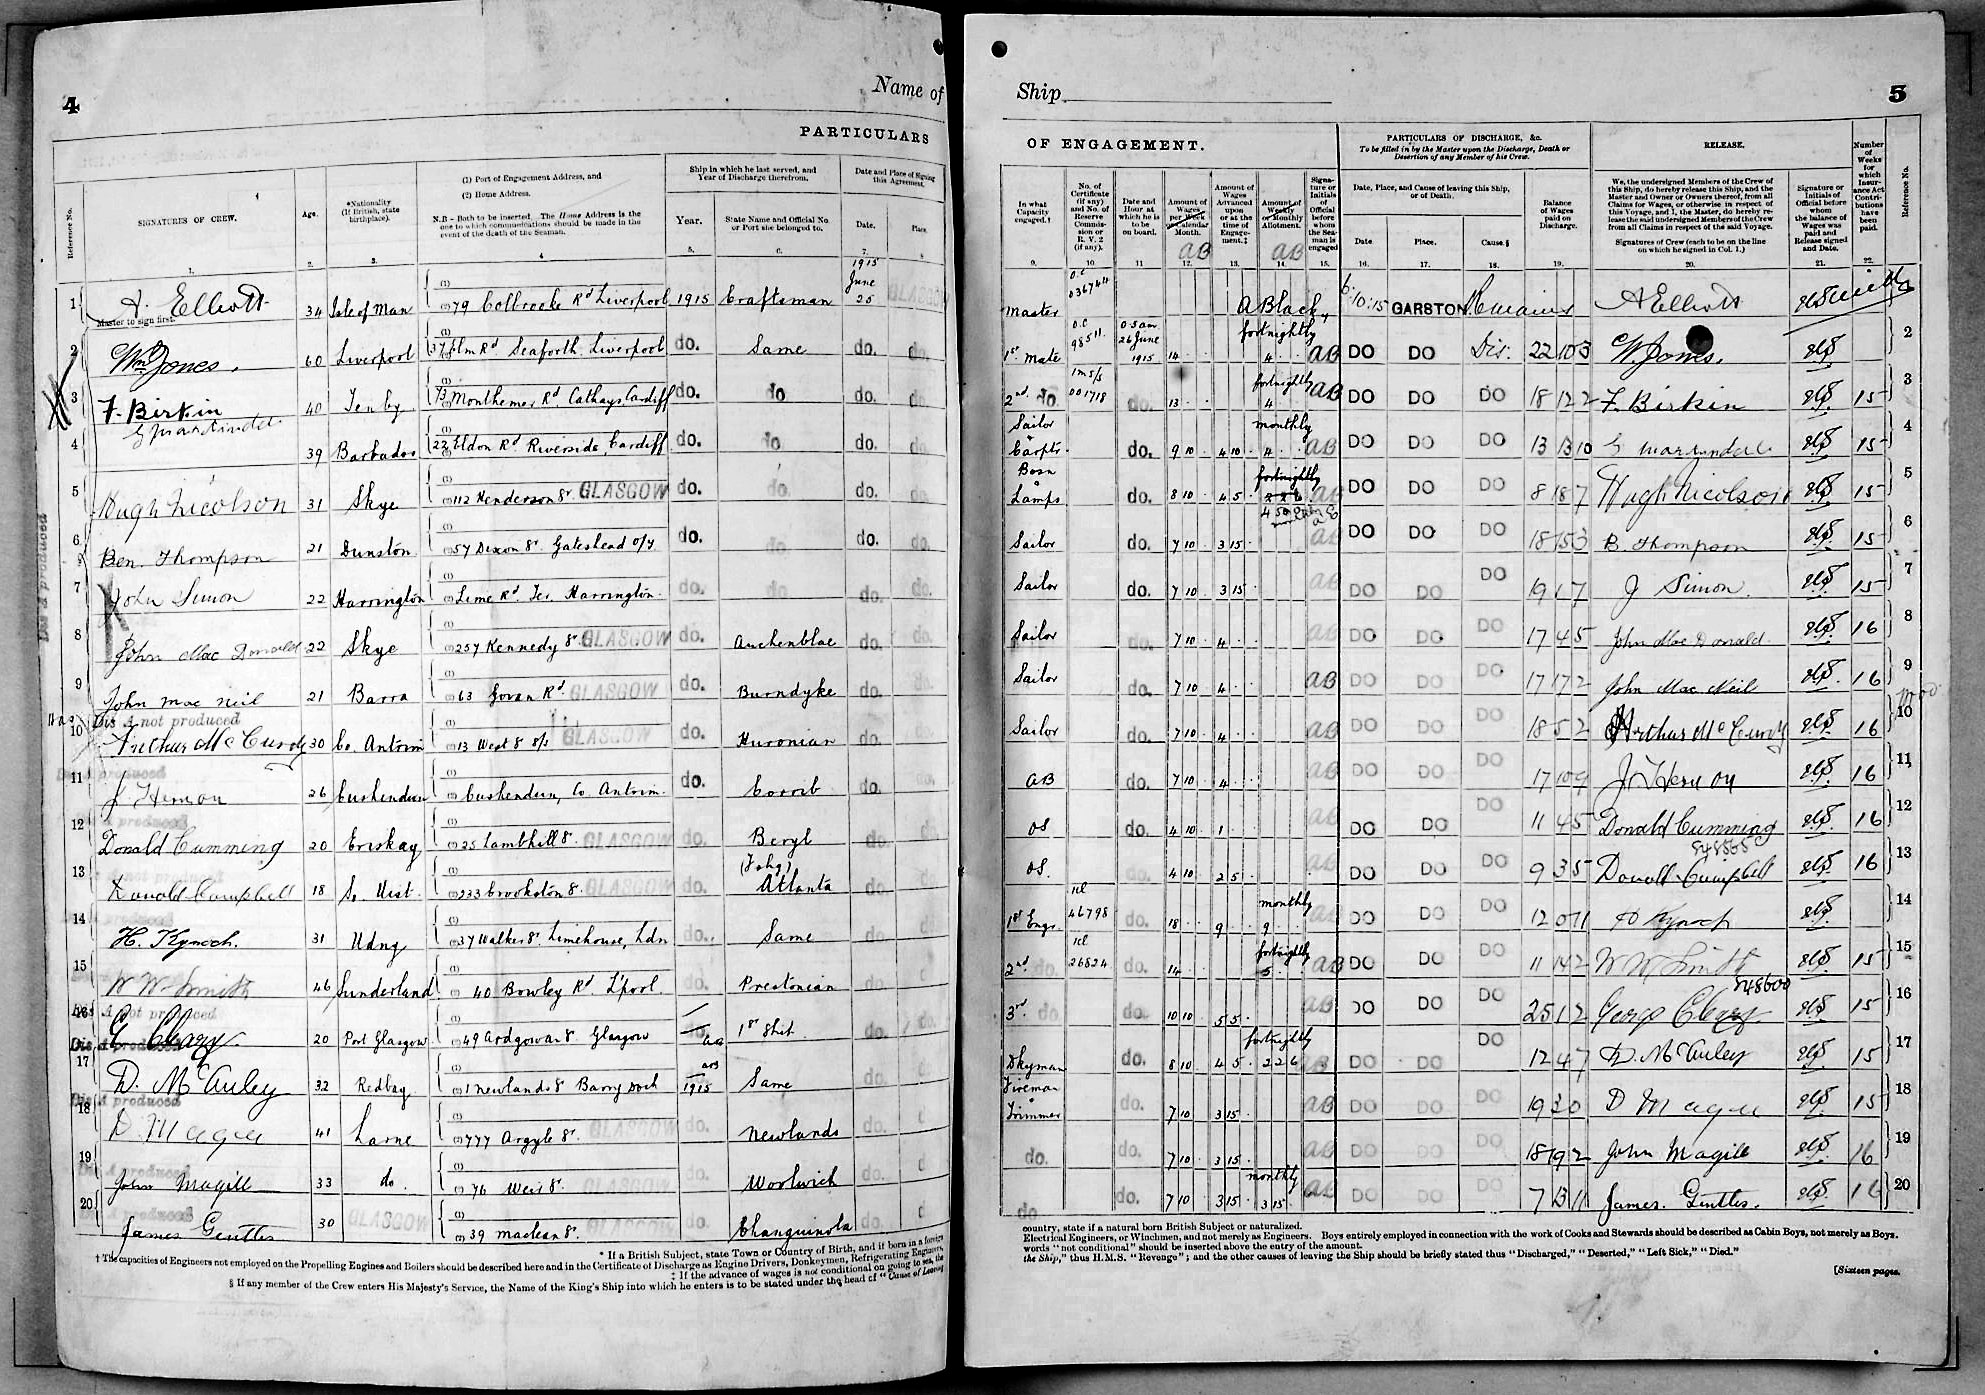 4
Name of
PARTICULARS
Reference No.
SIGNATURES OF CREW.
Age.
*Nationality (If British, state birthplace).
(1) Port of Engagement Address, and
(2) Home Address.
N.B – Both to be inserted. The Home Address is the one to which communications should be made in the event of the death of the Seaman.
Ship in which he last served, and Year of Discharge therefrom.
Year.
State Name and Official No. or Port she belonged to.
Date and Place of Signing this Agreement.
Date.
Place.
1. 2. 3. 4 5. 6. 7. 8
1 A. Elliott 34 Isle of Man 79 Colbrooke Rd Liverpool 1915 Craftsman 1915 June 25 GLASGOW
Master to sign first.
2 Wm Jones. 60 Liverpool 37 Elm Rd Seaforth Liverpool do. Same do. do.
3 F. Birkin 40 Tenby 73 Monthemer Rd Cathays Cardiff do. do do. do.
4 G Martindale 39 Barbados 22 Eldon Rd Riverside Cardiff do. do do. do.
5 Hugh Nicolson 31 Skye 112 Henderson St GLASGOW do. do do. do.
6 Ben. Thompson 21 Dunston 57 Dixon St Gateshead o/y do. do do. do.
7 John Simon 22 Harrington Lime Rd Ter. Harrington. do. do do. do.
8 John Mac Donald 22 Skye 257 Kennedy St GLASGOW do. Auchenblae do. do.
9 John Mac Neil 21 Barra 63 Govan Rd GLASGOW do. Burndyke do. do.
Dis A not produced
10 Arthur Mc Curdy 30 Co. Antrim 13 West St GLASGOW do. Huronian do. do.
Dis A produced
11 J. Hernon 26 Cushendun Cushendun, Co Antrim. do. Corrib do. do.
Dis A produced
12 Donald Cumming 20 Eriskay 25 Lambhill St GLASGOW do. Beryl do. do
13 Donald Campbell 18 So. Uist. 233 Crookston St GLASGOW do. Atlanta do. do
14 H. Kynoch. 31 Udny 37 Walker St Limehouse, Ldn do. Same do
15 W W Smith 46 Sunderland 40 Bowley Rd. L'pool. Prestonian do.
Dis A not produced
16 G Cleary 20 Port Glasgow 49 Ardgowan St Glasgow 1st Ship do.
Dis A produced
17 D. McAuley 32 Redbay 1 Newlands St Barry Dock 1915 Same do.
Dis A produced
18 D. Magee 41 Larne 777 Argyle St. GLASGOW do. Newlands do.
19 John Magill 33 do. 76 Weir St. GLASGOW do. Woolwich do.
20 James Gentles 30 GLASGOW 39 Maclean St. GLASGOW do. Changuinola do.
* If a British Subject, state Town or Country of Birth, and if born in a foreign
† The capacities of Engineers not employed on the Propelling Engines and Boilers should be described here and in the Certificate of Discharge as Engine Drivers, Donkeymen, Refrigerating Engineers,
‡ If the advance of wages is not conditional on going to sea, the
§ If any member of the Crew enters His Majesty's Service, the Name of the King's Ship into which he enters is to be stated under the head of "Cause of Leaving
Ship
5
OF ENGAGEMENT.
PARTICULARS OF DISCHARGE, &c.
To be filled in by the Master upon the Discharge, Death or Desertion of any Member of his Crew.
RELEASE.
In what Capacity engaged.†
No. of Certificate (if any) and No. of Reserve Commission or R. V. 2 (if any).
Date and Hour at which he is to be on board.
Amount of Wages per Week or Calendar Month.
AB
Amount of Wages Advanced upon or at the time of Engagement.‡
Amount of Weekly or Monthly Allotment.
AB
Signature or Initials of Official before whom the Seaman is engaged
Date, Place, and Cause of leaving this Ship, or of Death.
Date Place. Cause.§
Balance of Wages paid on Discharge.
We, the undersigned Members of the Crew of this Ship, do hereby release this Ship, and the Master and Owner or Owners thereof, from all Claims for Wages, or otherwise in respect of this Voyage, and I, the Master, do hereby release the said undersigned Members of the Crew from all Claims in respect of the said Voyage.
Signatures of Crew (each to be on the line on which he signed in Col. 1.)
Signature or Initials of Official before whom the balance of Wages was paid and Release signed and Date.
Number of Weeks for which Insurance Act Contributions have been paid.
Reference No.
9. 10. 11 12. 13. 14. 15. 16. 17. 18. 19. 20. 21. 22.
Master 036744 A Black 6:10:15 GARSTON Remains A Elliott
1st Mate 98511. 0 5 am 26 June 1915 14 fortnightly 4 AB DO DO Dis. 22 10 3 W. Jones. 2
2nd do 001718 do. 13 fortnightly 4 AB DO DO DO 18 12 2 F. Birkin 15 3
Sailor & Carptr. do. 9 10 4 10 monthly 4 AB DO DO DO 13 13 10 G Martindale 15 4
Bosn & Lamps do. 8 10 4 5 fortnightly 2 2 6 AB DO DO DO 8 18 7 Hugh Nicolson 15 5
Sailor do. 7 10 3 15 AB DO DO DO 18 15 3 B. Thompson 15 6
Sailor do. 7 10 3 15 AB DO DO DO 19 1 7 J Simon. 15 7
Sailor 7 10 4 AB DO DO DO 17 4 5 John Mac Donald. 16 8
Sailor do. 7 10 4 AB DO DO DO 17 17 2 John Mac Neil 16 9
Sailor do. 7 10 4 AB DO DO DO 18 5 2 Arthur Mc Curdy 16 10
AB do. 7 10 4 AB DO DO DO 17 10 9 J. Hernon 16 11
OS do. 4 10 1 AB DO DO DO 11 4 5 Donald Cumming 16 12
848565
OS. do. 4 10 2 5 AB DO DO DO 9 3 5 Donald Campbell 16 13
1st Engr. 46798 do. 18 9 monthly 9 AB DO DO DO 12 0 11 H Kynoch 14
2nd. do. 26824 do. 14 fortnightly 5 AB DO DO DO 11 14 2 W W Smith 15 15
848600
3rd. do do. 10 10 5 5 AB DO DO DO 25 1 2 George Cleary. 15 16
Dkyman do. 8 10 4 5 fortnightly 2 2 6 DO DO DO 12 4 7 D. McAuley 15 17
Fireman & Trimmer do. 7 10 3 15 AB DO DO DO 19 3 0 D Magee 15 18
do. do. 7 10 3 15 AB DO DO DO 18 19 2 John Magill 16 19
do do. 7 10 3 15 monthly 3 15 AB DO DO DO 7 13 11 James. Gentles. 16 20
country, state if a natural born British Subject or naturalized.
Electrical Engineers, or Winchmen, and not merely as Engineers. Boys entirely employed in connection with the work of Cooks and Stewards should be described as Cabin Boys, not merely as Boys.
words "not conditional" should be inserted above the entry of the amount.
the Ship," thus H.M.S. "Revenge"; and the other causes of leaving the Ship should be briefly stated thus "Discharged," "Deserted," "Left Sick," "Died."
[Sixteen pages.